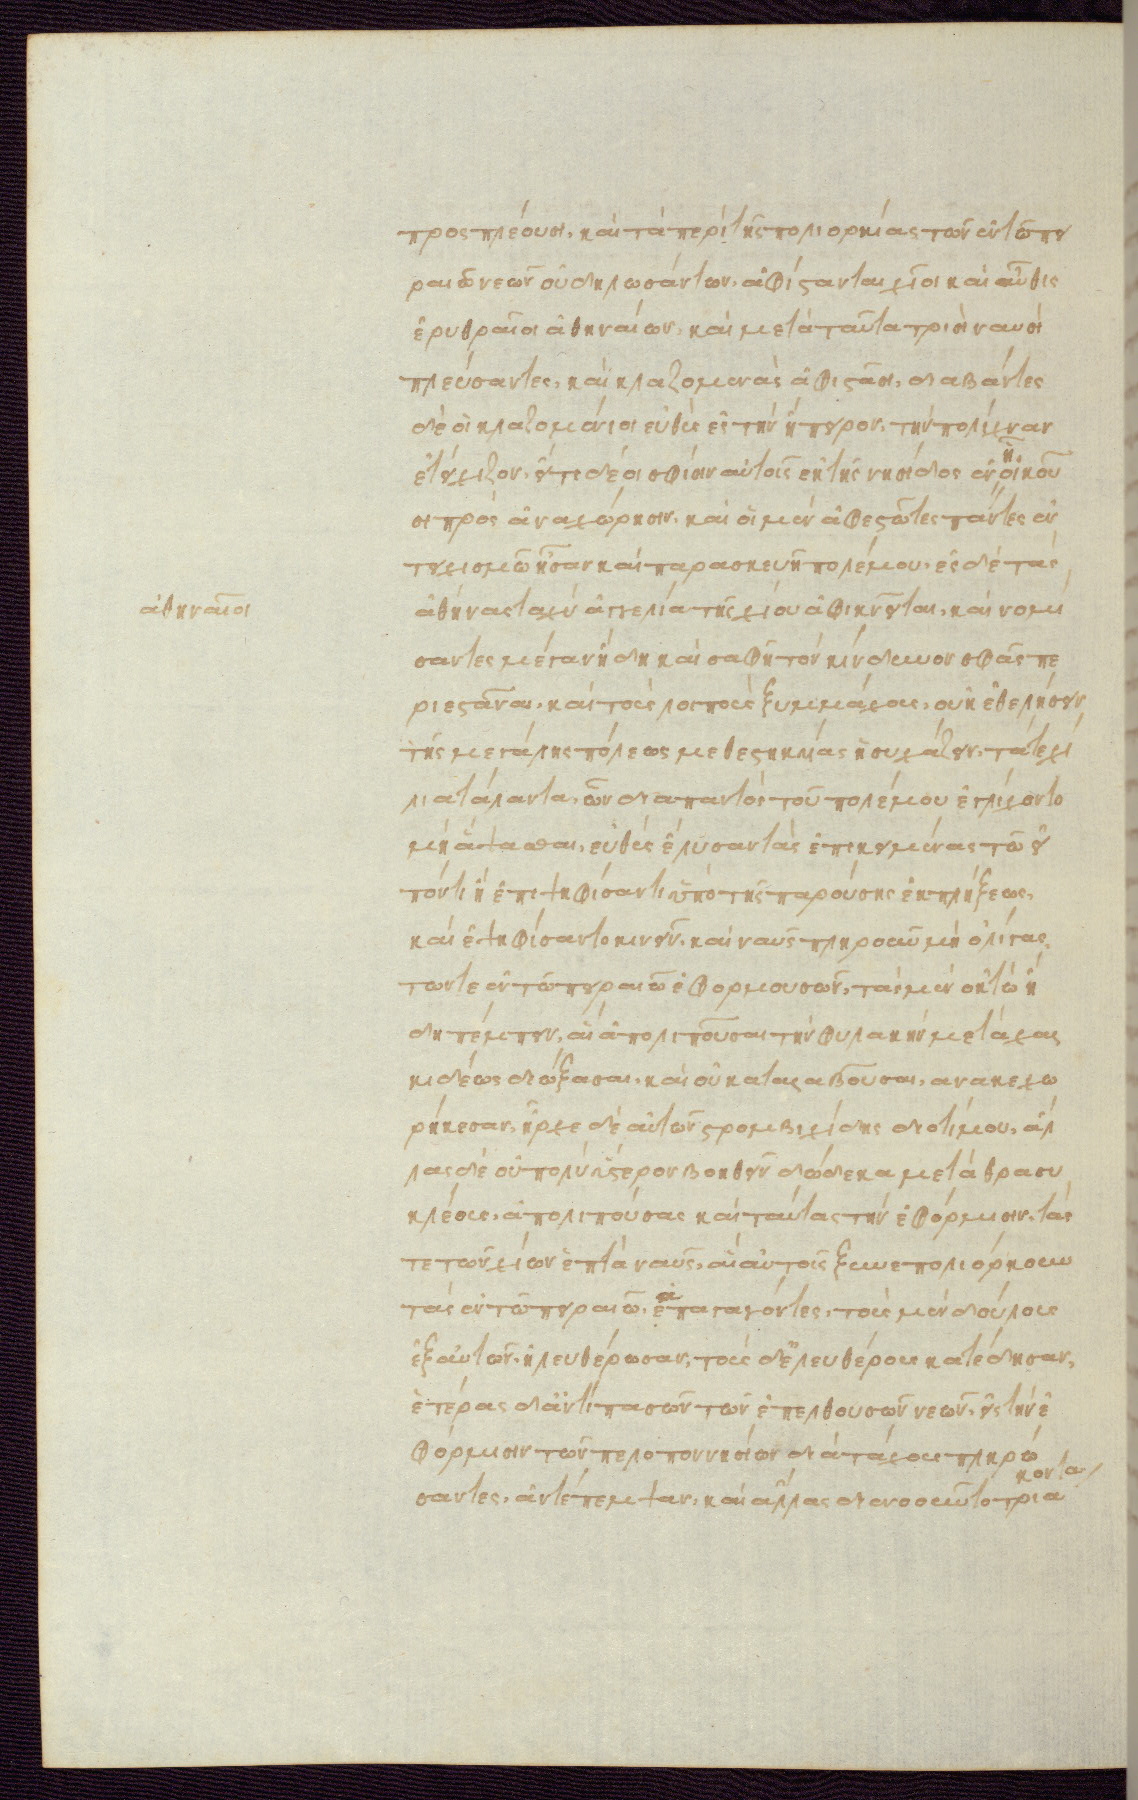 προσπλέουσι, καὶ τὰ περὶ τῆς πολιορκίας τῶν ἐν τῶ πει
ραιῶ νεῶν οὐ δηλωσάντων, ἀφίστανται χῖοι καὶ αὖθις
ἐρυθραῖοι ἀθηναίων, καὶ μετὰ ταῦτα τρισὶ ναυσὶ
πλεύσαντες, καὶ κλαζομενὰς ἀφιστᾶσι, διαβάντες
δὲ οἱ κλαζομένιοι εὐθὺς ἐς τὴν ἤπειρον, τὴν πολίχναν
ἐτείχιζον, εἴ τι δέοι σφίσιν αὐτοῖς ἐκ τῆς νησίδος ἐν ἧ οἰκοῦ
σι πρὸς ἀναχώρησιν, καὶ οἱ μὲν ἀφεστῶτες πάντες ἐν
τειχισμῶ ἦσαν καὶ παρασκευῆ πολέμου, ἐς δὲ τὰς
ἀθηναῖοι
ἀθήνας ταχὺ ἀγγελία τῆς χίου ἀφικνεῖται, καὶ νομί
σαντες μέγαν ἤδη καὶ σαφῆ τὸν κίνδυνον σφᾶς πε
ριεστάναι, καὶ τοὺς λοιποὺς ξυμμάχους, οὐκ ἐθελήσειν
τῆς μεγάλης πόλεως μεθεστηκυίας ἡσυχάζειν, τά τε χί
λια τάλαντα, ὧν διαπαντὸς τοῦ πολέμου ἐγλίχοντο
μὴ ἅψασθαι, εὐθὺς ἔλυσαν τὰς ἐπικειμένας τῶ εἰ
πόντι ἢ ἐπιψηφίσαντι ὑπὸ τῆς παρούσης ἐκπλήξεως,
καὶ ἐψηφίσαντο κινεῖν, καὶ ναῦς πληροῦν μὴ ὀλίγας,
τῶν τε ἐν τῶ πειραιῶ ἐφορμουσῶν, τὰς μὲν ὀκτὼ ἤ
δη πέμπειν, αἳ ἀπολιποῦσαι τὴν φυλακὴν μετὰ χαρ
μιδέως διώξασαι, καὶ οὐ καταλαβοῦσαι, ανακεχω
ρήκεσαν, ἦρχε δὲ αὐτῶν στρομβιχίδης διοτίμου, ἄλ
λας δὲ οὐ πολὺ ὕστερον βοηθεῖν δώδεκα μετὰ θρασυ
κλέους, ἀπολιπούσας καὶ ταύτας τὴν ἐφόρμισιν, τάς
τε τῶν χίων ἑπτὰ ναῦς, αἳ αὐτοῖς ξυνεπολιόρκουν
τὰς ἐν τῶ πειραιῶ, ἀπαγαγόντες, τοὺς μὲν δούλους
ἐξ αὐτῶν, ἠλευθέρωσαν, τοὺς δ' ἐλευθέρους κατέδησαν,
ἑτέρας δ' ἀντὶ πασῶν τῶν ἀπελθουσῶν νεῶν, ἐς τὴν ἐ
φόρμισιν τῶν πελοποννησίων διὰ τάχους πληρώ
σαντες, ἀντέπεμψαν, καὶ ἄλλας διενοοῦντο τριάκοντα